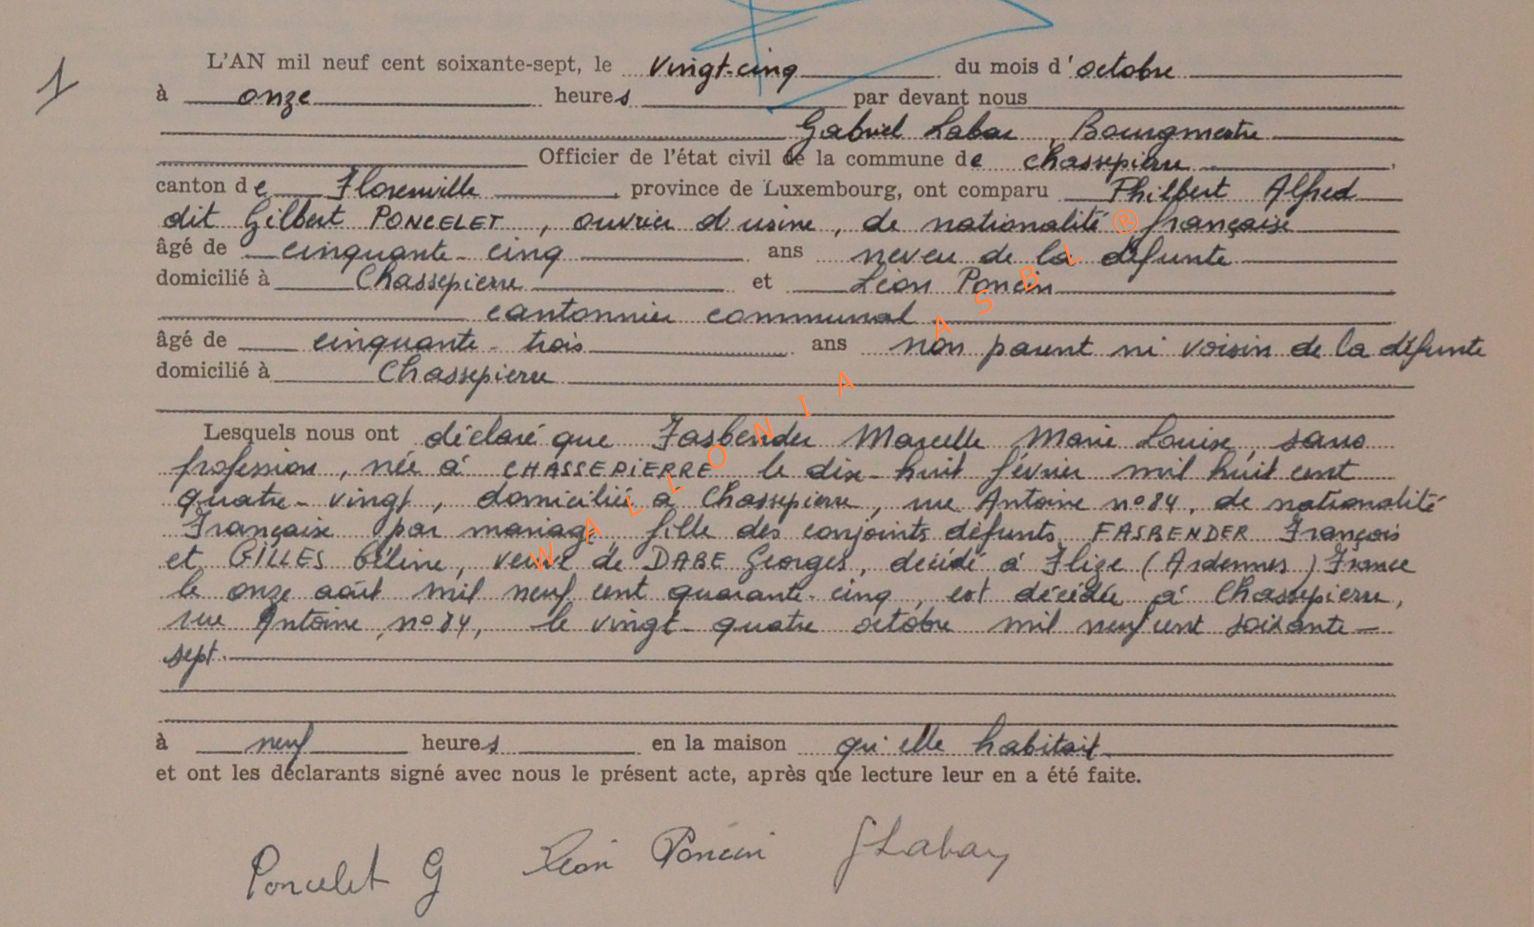 1
L'AN mil neuf cent soixante-sept, le vingt-cinq du mois d'octobre
à onze heures par devant nous
Gabriel Labar, Bourgmestre
Officier de l'état civil de la commune de Chassepierre,
canton de Florenville, province de Luxembourg, ont comparu Philbert Alfred
dit Gilbert PONCELET, ouvrier d'usine, de nationalité française
âgé de cinquante-cinq ans neveu de la défunte
domicilié à Chassepierre et Léon Poncin
cantonnier communal
âgé de cinquante-trois ans non parent ni voisin de la défunte
domicilié à Chassepierre
Lesquels nous ont déclaré que Fasbender Marcelle Marie Louise, sans
profession, née à CHASSEPIERRE le dix-huit février mil huit cent
quatre-vingt, domiciliée à Chassepierre, rue Antoine n°84, de nationalité
Française par mariage, fille des conjoints défunts FASBENDER François
et GILLES Céline, veuve de DABE Georges, décédé à Flize (Ardennes) France
le onze août mil neuf cent quarante-cinq, est décédée à Chassepierre,
rue Antoine, n°84, le vingt-quatre octobre mil neuf cent soixante-
sept.
à neuf heures en la maison qu'elle habitait
et ont les déclarants signé avec nous le présent acte, après que lecture leur en a été faite.
Poncelet G Léon Poncin GLabar
WALLONIA ASBL ®